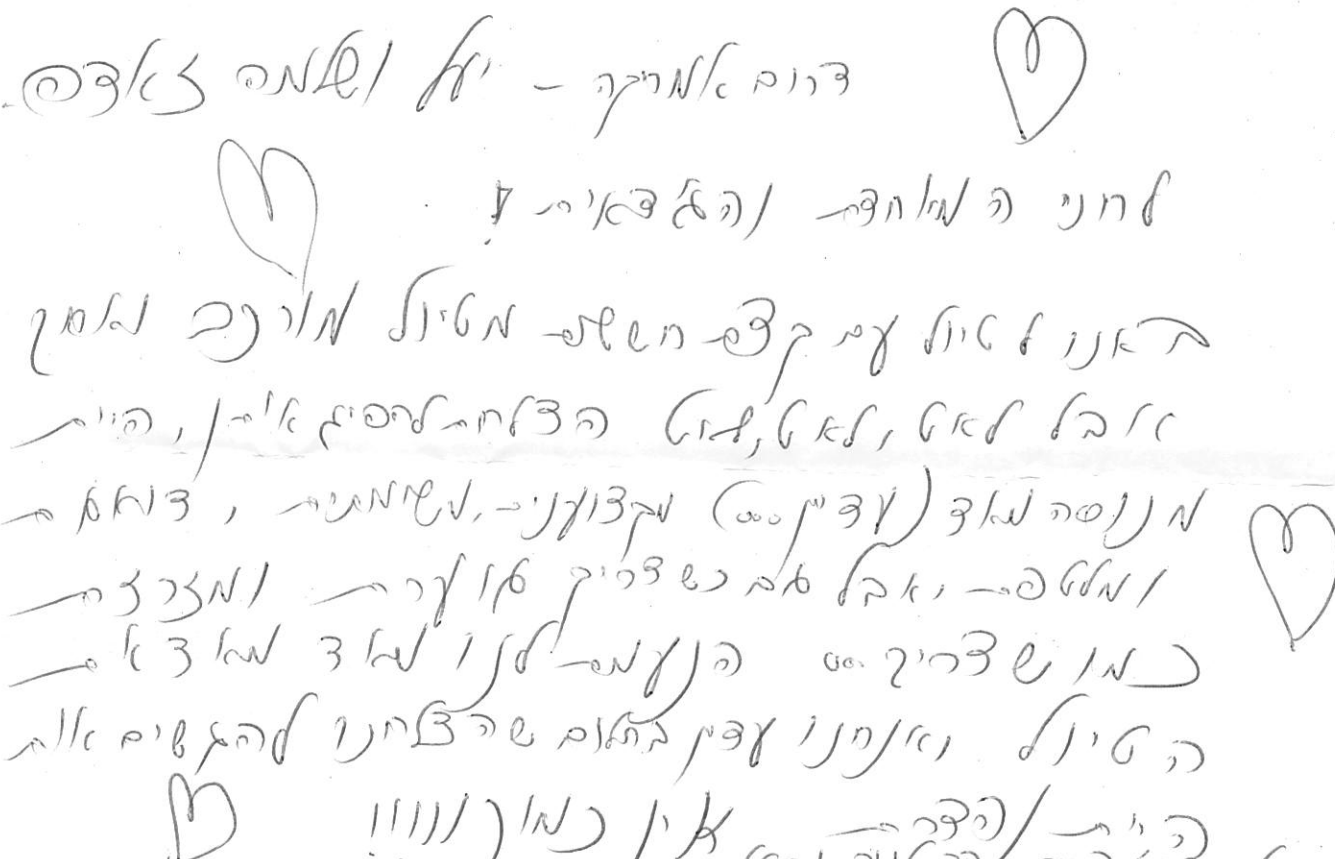 דרום אמריקה – יעל ושלמה זאדה.
לרוני המאוחדת והגדאית!
באנו לטיול עם קצת חששות מטיול מורכב ואסק
אבל לאט, לאט, לאט הצלחת להפיג אותן, היית
מנוסה מאד (עדין...) מקצועית, משימתית, דואגת
ומלטפת, אבל גם כשצריך גוערת ומזרזת
כמו שצריך... הנעמת לנו מאד מאד את
הטיול ואנחנו עדין בחלום שהצלחנו להגשים אות
היית נהדרת אין כמוךןןןן!!